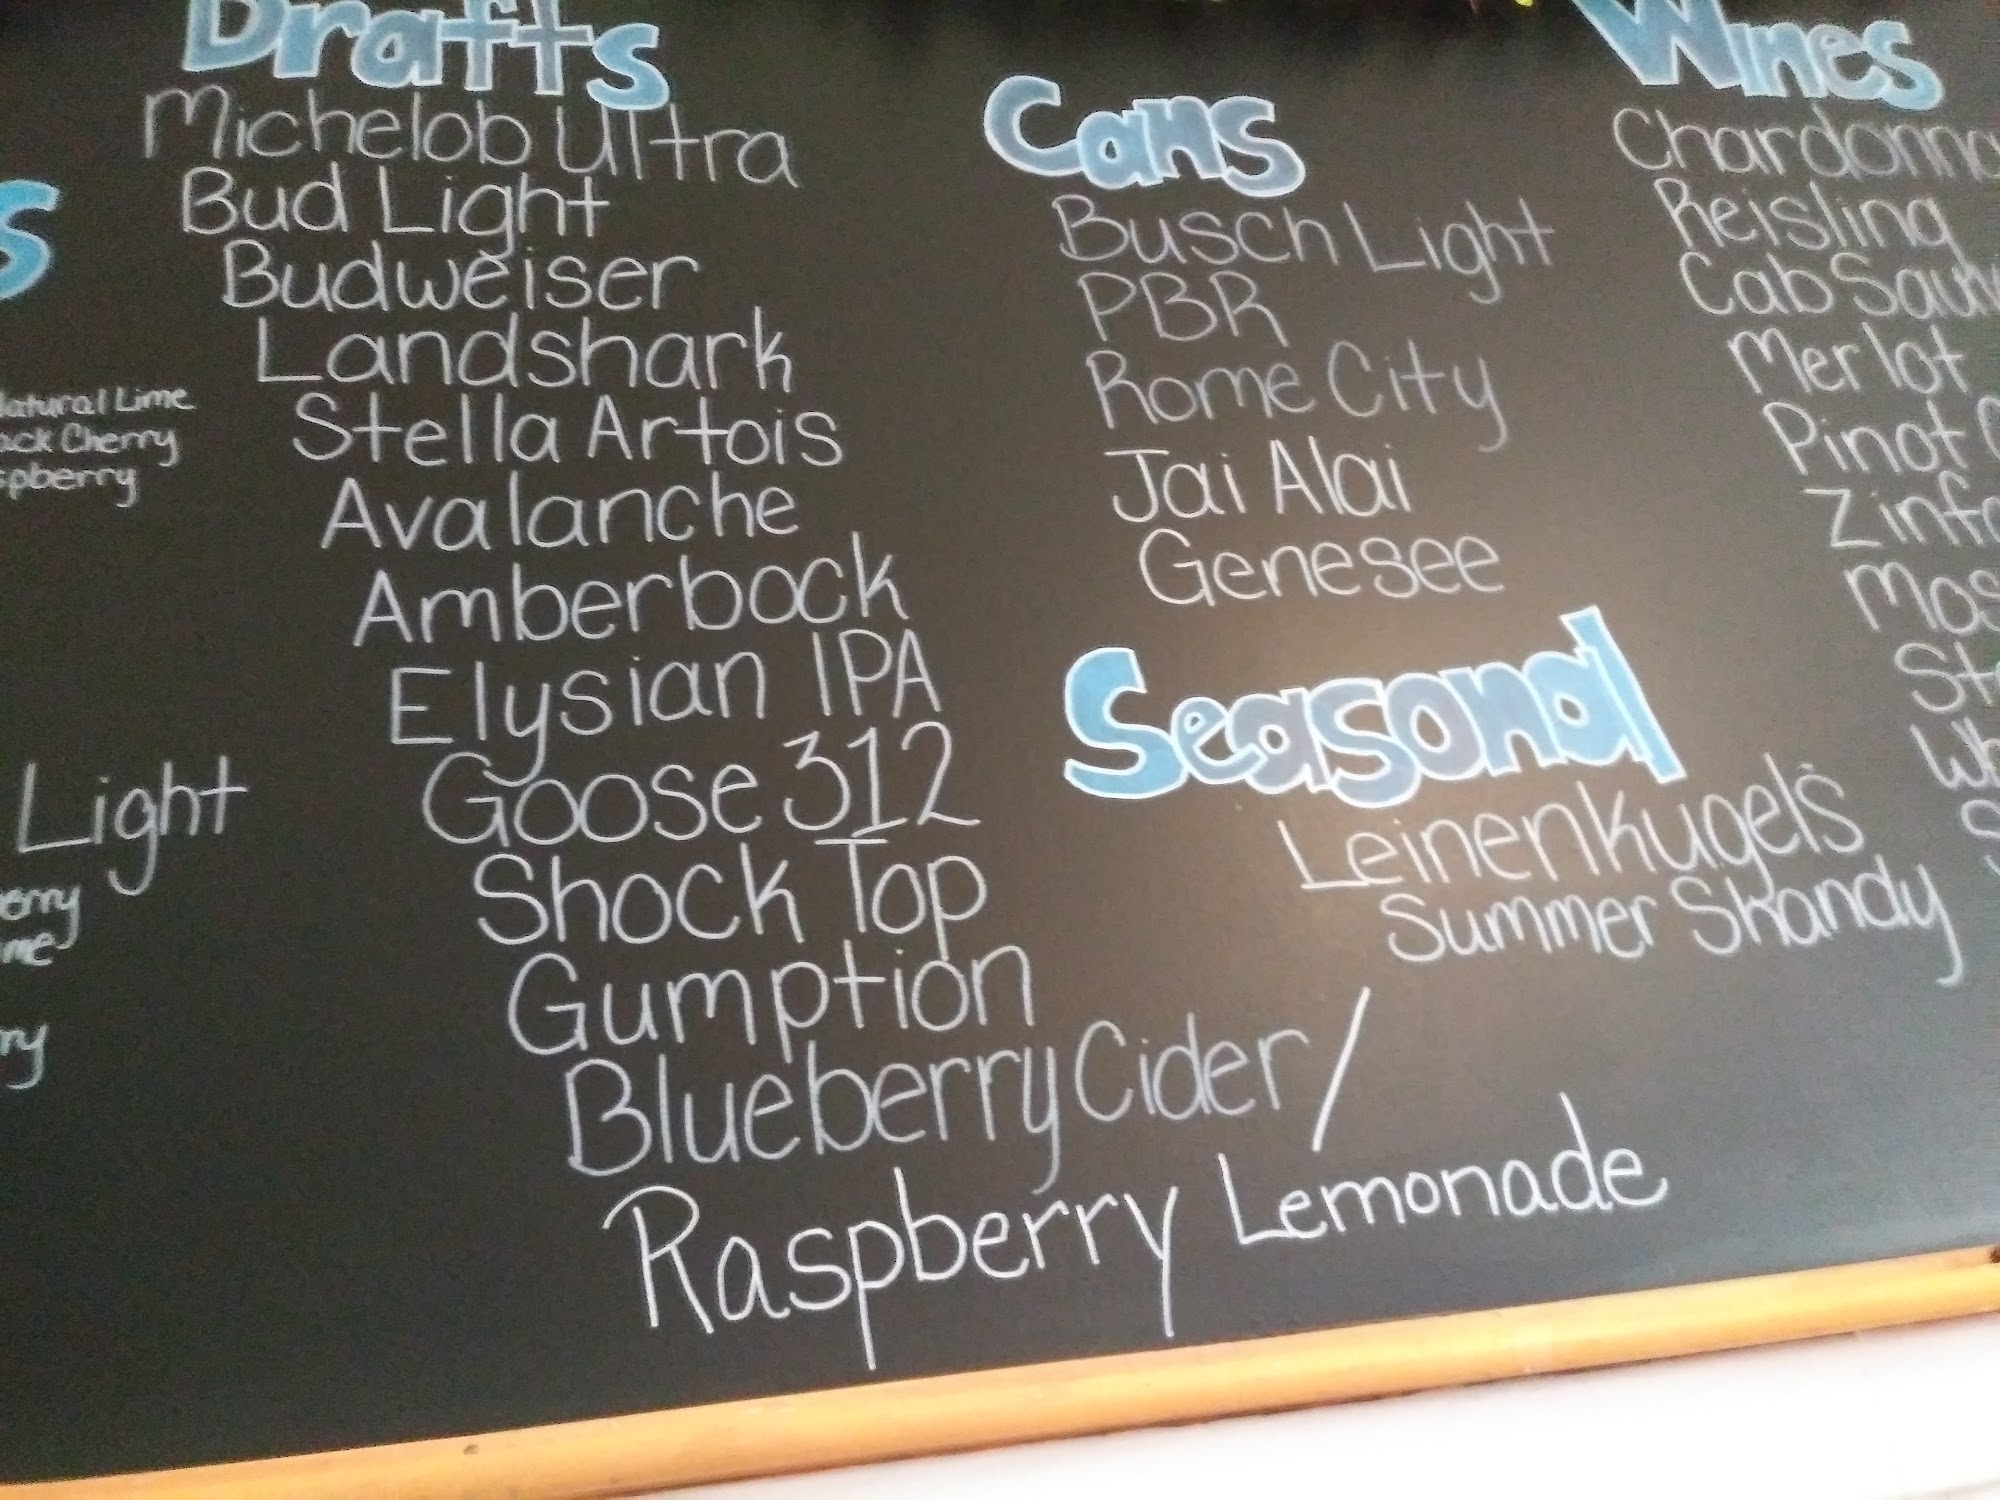 Light
Drafts
Michelob Ultra
Bud Light
Budweiser
Landshark
Stella Artois
Avalanche
Amberbock
Elysian IPA
Goose 312
Shock Top
Gumption
Blueberry Cider /
Raspberry Lemonade
Cans
Busch Light
PBR
Rome City
Jai Alai
Genesee
Seasonal
Leinenkugel's
Summer Shandy
Wines
Reisling
Cab
Merlot
Pinot
Lime
Cherry